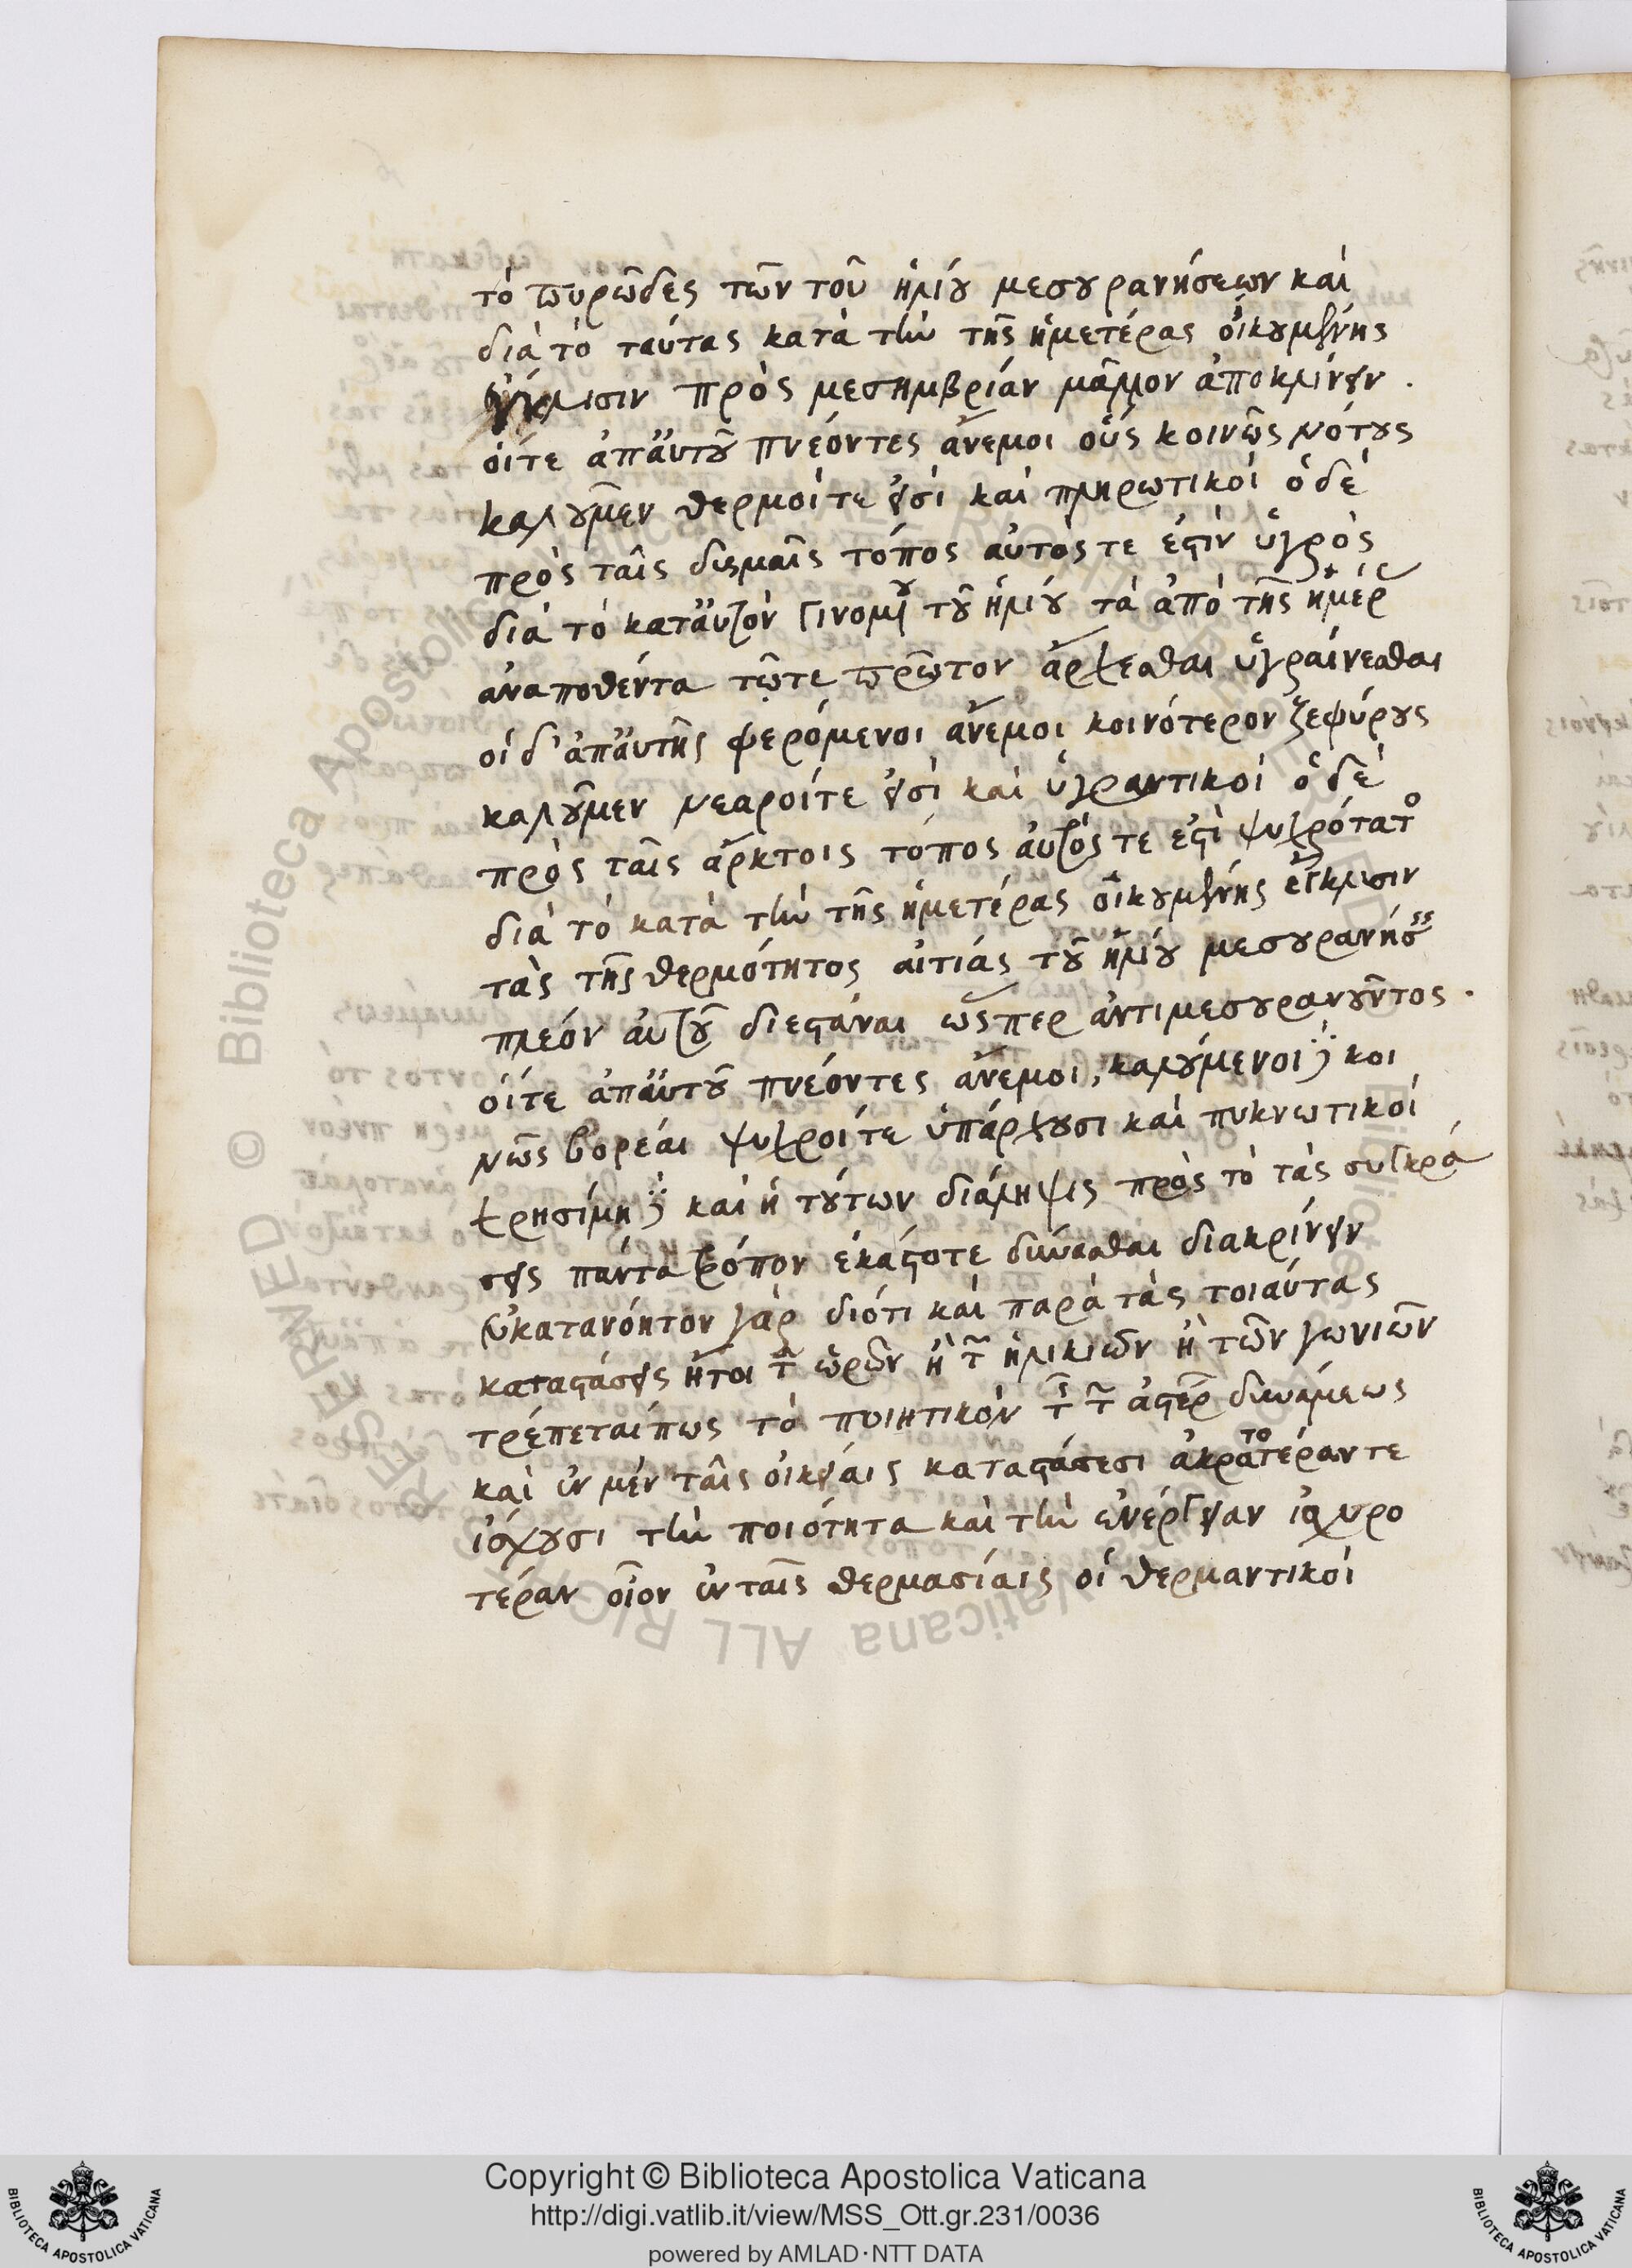 τὸ πυρῶδες τῶν τοῦ ἡλίου μεσουρανήσεων καὶ
διὰ τὸ ταύτας κατὰ τὴν τῆς ἡμετέρας οἰκουμένης
ἔγκλισιν πρὸς μεσημβρίαν μᾶλλον ἀποκλίνειν .
οἵτε ἀπ' αὐτοῦ πνέοντες ἄνεμοι οὓς κοινῶς νότους
καλοῦμεν θερμοίτε εἰσὶ καὶ πληρωτικοί ὁ δὲ
πρὸς ταῖς δυσμαῖς τόπος αὐτός τε ἐστὶν ὑγρὸς
διὰ τὸ κατ' αὐτὸν γινομένου τοῦ ἡλίου τὰ ἀπὸ τῆς ἡμέρ
ἀναποθέντα τότε πρῶτον ἄρχεσθαι ὑγραίνεσθαι
οἱ δ' ἀπ' αὐτῆς φερόμενοι ἄνεμοι κοινότερον ζεφύρους
καλοῦμεν νεαροίτε εἰσὶ καὶ ὑγραντικοί ὁ δὲ
πρὸς ταῖς ἄρκτοις τόπος αὐτός τε ἐστὶ ψυχρότατο
διὰ τὸ κατὰ τὴν τῆς ἡμετέρας οἰκουμένης ἔγκλισιν
τὰς τῆς θερμότητος αἰτίας τοῦ ἡλίου μεσουρανήσ
πλέον αὐτοῦ διεστάναι ὥσπερ ἀντιμεσουρανοῦντος .
οἵτε ἀπ' αὐτοῦ πνέοντες ἄνεμοι, καλούμενοι δὲ κοι
νῶς βορέαι ψυχροίτε ὑπάρχουσι καὶ πυκνωτικοί
χρησίμη δὲ καὶ ἡ τούτων διάληψις πρὸς τὸ τὰς συγκρά
σεις πάντα τρόπον ἑκάστοτε δύνασθαι διακρίνειν
εὐκατανόητον γὰρ διότι καὶ παρὰ τὰς τοιαύτας
καταστάσεις ἤτοι τῶν ὡρῶν ἢ τῶν ἡλικιῶν ἢ τῶν γωνιῶν
τρέπεταί πως τὸ ποιητικὸν τῆς τῶν ἀστέρ δυνάμεως
καὶ ἐν μὲν ταῖς οἰκείαις καταστάσεσι ἀκρατοτέραν τε
ἰσχουσι τὴν ποιότητα καὶ τὴν ἐνέργειαν ἰσχυρο
τέραν οἷον ἐν ταῖς θερμασίαις οἱ θερμαντικοὶ
Copyright © Biblioteca Apostolica Vaticana
http://digi.vatlib.it/view/MSS_Ott.gr.231/0036
powered by AMLAD·NTT DATA